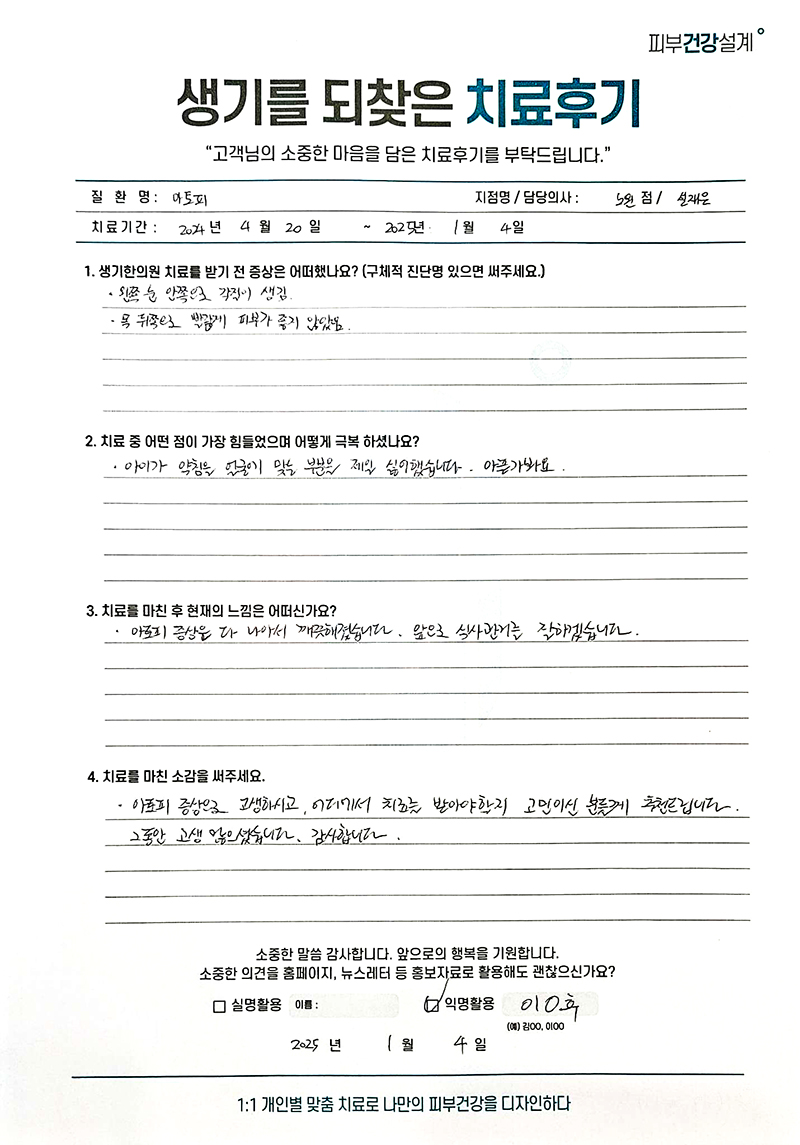 피부건강설계
생기를 되찾은 치료후기
“고객님의 소중한 마음을 담은 치료후기를 부탁드립니다.”
질 환 명 : 아토피 지점명 / 담당의사 : 노원 점 /
치료기간 : 2024 년 4 월 20 일 ~ 2025년 1 월 4일
1. 생기한의원 치료를 받기 전 증상은 어떠했나요? (구체적 진단명 있으면 써주세요.)
· 왼쪽 눈 안쪽으로 각질이 생김.
· 목 뒤쪽으로 빨갛게 피부가 좋지 않았음.
2. 치료 중 어떤 점이 가장 힘들었으며 어떻게 극복 하셨나요?
· 아이가 약침을 얼굴에 맞는 부분을 제일 싫어했습니다. 아픈가봐요.
3. 치료를 마친 후 현재의 느낌은 어떠신가요?
· 아토피 증상은 다 나아서 깨끗해졌습니다. 앞으로 식사관리는 잘하겠습니다.
4. 치료를 마친 소감을 써주세요.
· 아토피 증상으로 고생하시고, 어디에서 치료를 받아야할지 고민이신 분들께 추천드립니다.
그동안 고생 많으셨습니다. 감사합니다.
소중한 말씀 감사합니다. 앞으로의 행복을 기원합니다.
소중한 의견을 홈페이지, 뉴스레터 등 홍보자료로 활용해도 괜찮으신가요?
실명활용 이름 : 익명활용 이O호
(예) 김OO, 이OO
2025 년 1 월 4 일
1:1 개인별 맞춤 치료로 나만의 피부건강을 디자인하다